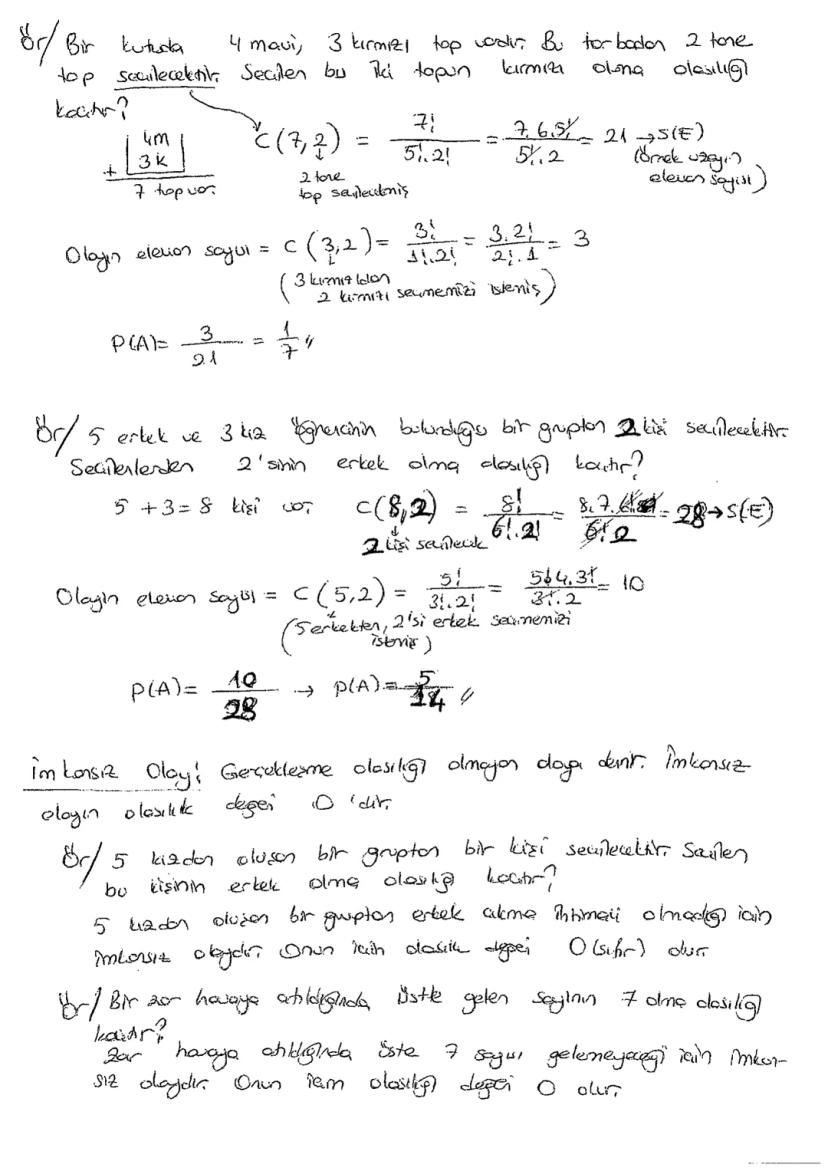 Ör/ Bir kutuda 4 mavi, 3 kırmızı top vardır. Bu torbadan 2 tane
top seçilecektir. Seçilen bu iki topun kırmızı olma olasılığı
kaçtır?
4m
3k
+
7 top var.
C(7,2) = 7!/5!.2! = 7.6.5!/5!.2 = 21 → S(E)
(örnek uzayın
eleman sayısı)
2 tane
top seçilecekmiş
Olayın eleman sayısı = C(3,2) = 3!/1!.2! = 3.2!/2!.1 = 3
(3 kırmızıdan
2 kırmızı seçmemizi istemiş)
P(A) = 3/21 = 1/7 //
Ör/ 5 erkek ve 3 kız öğrencinin bulunduğu bir gruptan 2 kişi seçilecektir.
Seçilenlerden 2'sinin erkek olma olasılığı kaçtır?
5 + 3 = 8 kişi var. C(8,2) = 8!/6!.2! = 8.7.6!/6!.2 = 28 → S(E)
2 kişi seçilecek
Olayın eleman sayısı = C(5,2) = 5!/3!.2! = 5.4.3!/3!.2 = 10
(5 erkekten, 2'si erkek seçmemizi
istemiş)
P(A) = 10/28 → P(A) = 5/14 //
İmkansız Olay: Gerçekleşme olasılığı olmayan olaya denir. İmkansız
olayın olasılık değeri 0'dır.
Ör/ 5 kızdan oluşan bir gruptan bir kişi seçilecektir. Seçilen
bu kişinin erkek olma olasılığı kaçtır?
5 kızdan oluşan bir gruptan erkek çıkma ihtimali olmadığı için
imkansız olaydır. Onun için olasılık değeri 0 (sıfır) olur.
Ör/ Bir zar havaya atıldığında üstte gelen sayının 7 olma olasılığı
kaçtır?
Zar havaya atıldığında üste 7 sayısı gelemeyeceği için imkan-
sız olaydır. Onun için olasılığı değeri 0 olur.